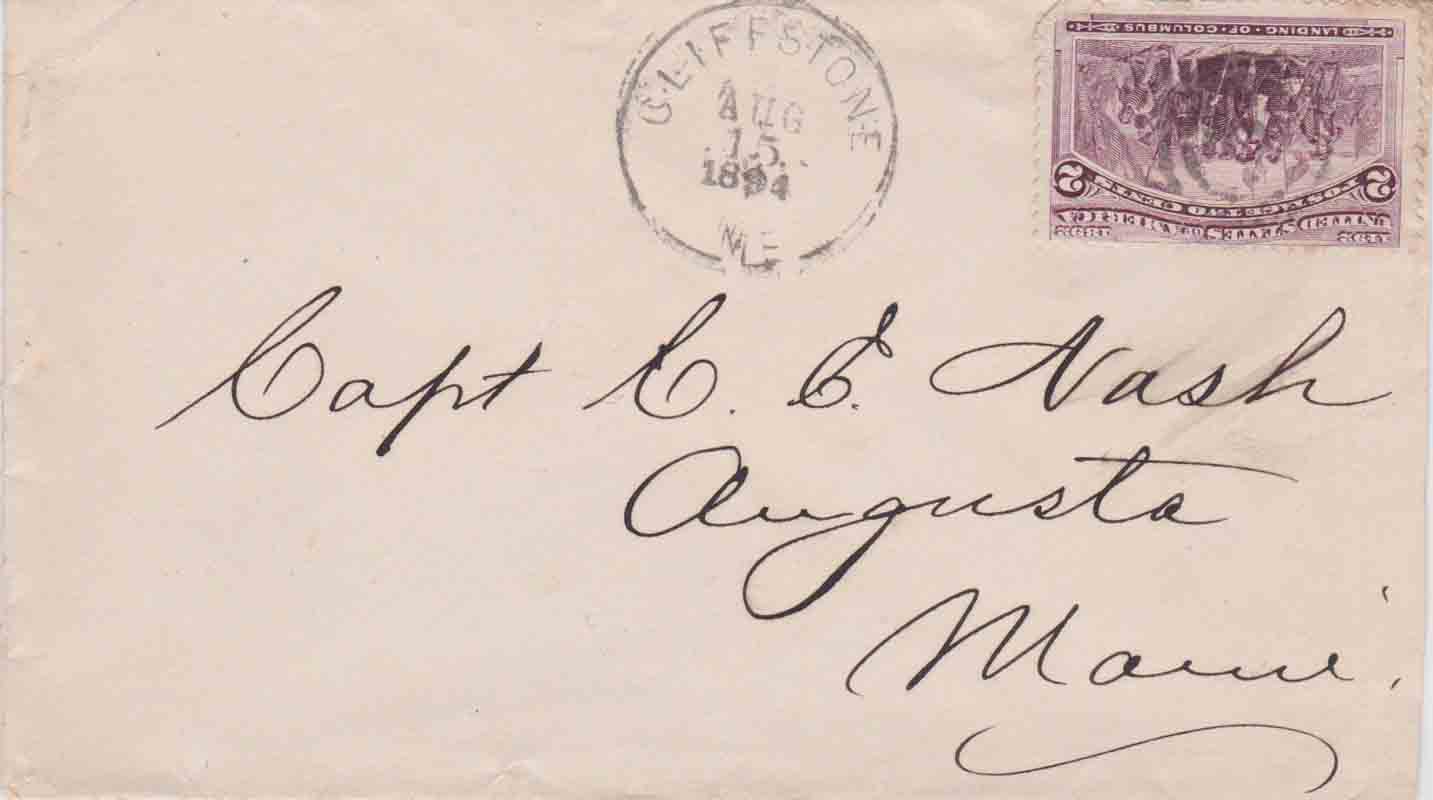 CLIFFSTONE
AUG
15
1894
ME
LANDING · OF · COLUMBUS
2 POSTAGE TWO CENTS 2
UNITED STATES OF AMERICA
Capt C. E. Nash
Augusta
Maine.